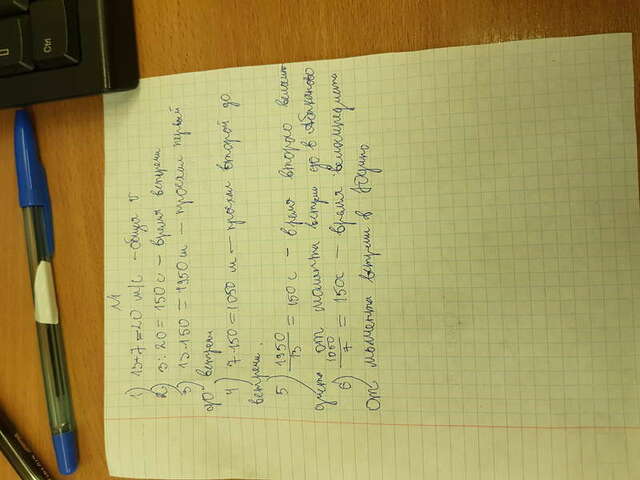 Ctrl
№1
1) 13+7=20 м/с - общая v
2) 3:20 = 150 с - время встречи
3) 13·150 = 1950 м - проехал первый
до встречи
4) 7·150=1050 м - проехал второй до
встречи.
5) 1950/13 = 150 с - время второго велоси-
диста от момента встречи до в Абаканово
6) 1050/7 = 150с - время велосипедиста
От момента встречи в Юдино